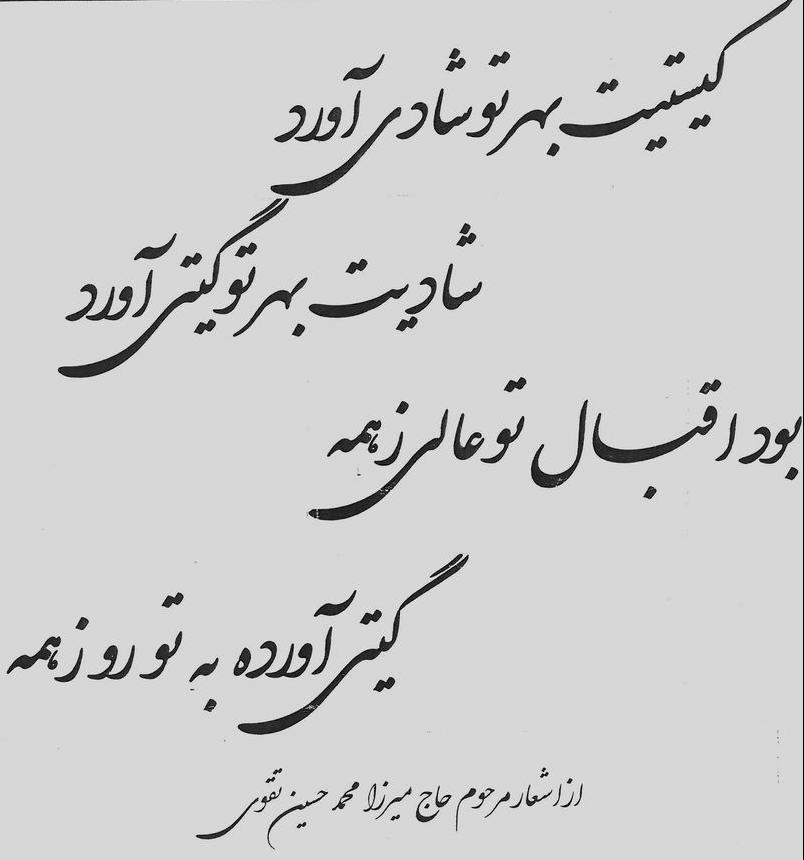 گیتیت بهر تو شادی آورد
شادیت بهر تو گیتی آورد
بود اقبال تو عالی ز همه
گیتی آورده به تو رو ز همه
از اشعار مرحوم حاج میرزا محمد حسین تقوی